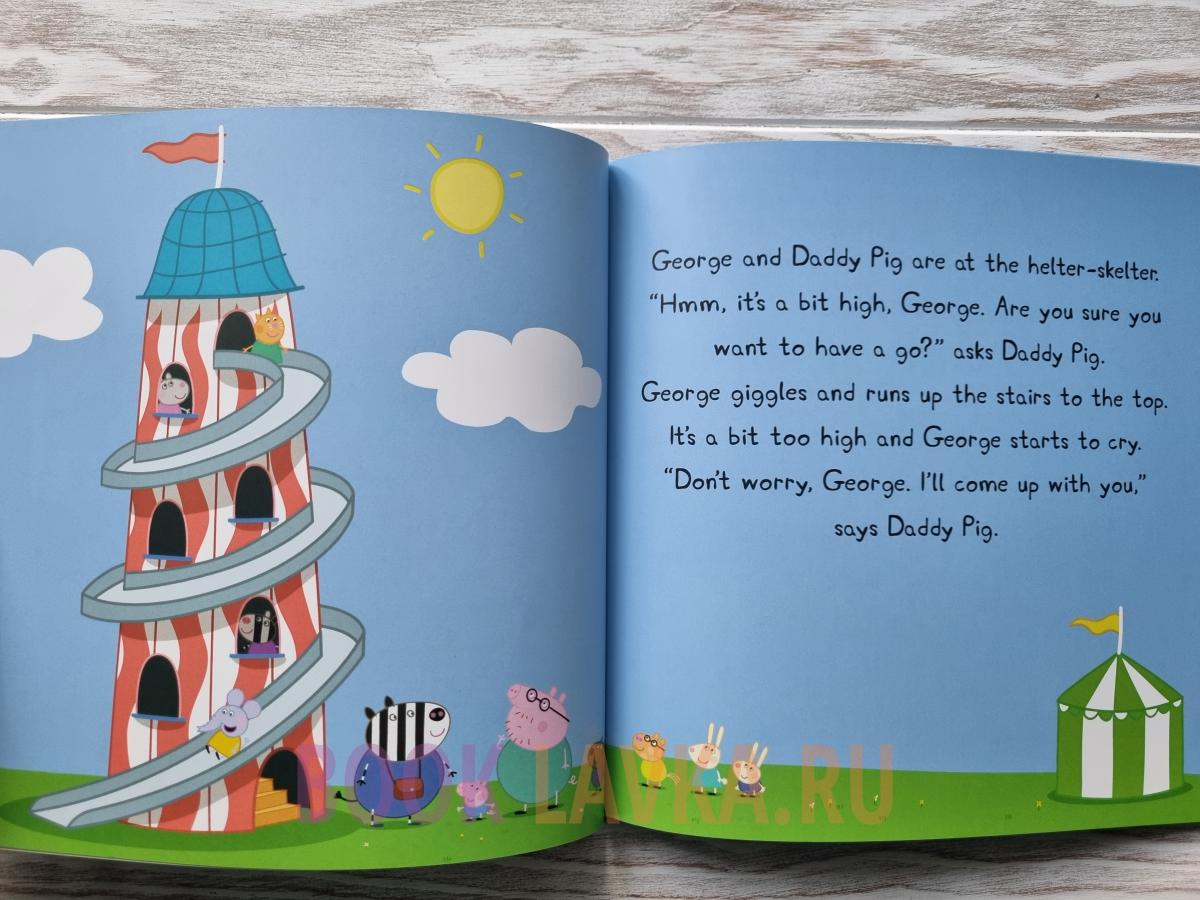 George and Daddy Pig are at the helter-skelter.
“Hmm, it’s a bit high, George. Are you sure you
want to have a go?” asks Daddy Pig.
George giggles and runs up the stairs to the top.
It’s a bit too high and George starts to cry.
“Don’t worry, George. I’ll come up with you,”
says Daddy Pig.
BOOK LAVKA.RU